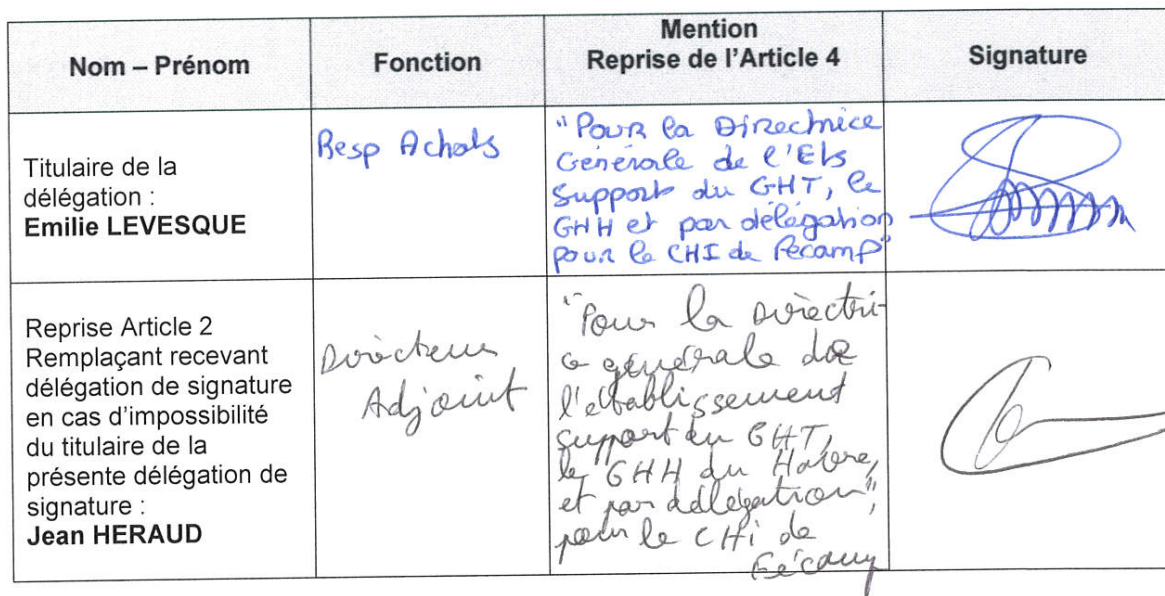 Nom – Prénom
Fonction
Mention
Reprise de l'Article 4
Signature
Titulaire de la
délégation :
Emilie LEVESQUE
Resp Achats
"Pour la Directrice
Générale de l'Ets
Support du GHT, le
GHH et par délégation
pour le CHI de Fécamp"
Reprise Article 2
Remplaçant recevant
délégation de signature
en cas d'impossibilité
du titulaire de la
présente délégation de
signature :
Jean HERAUD
Directeur
Adjoint
"Pour la Directri-
ce générale de
l'établissement
support du GHT,
le GHH du Havre,
et par délégation",
pour le CHI de
Fécamp